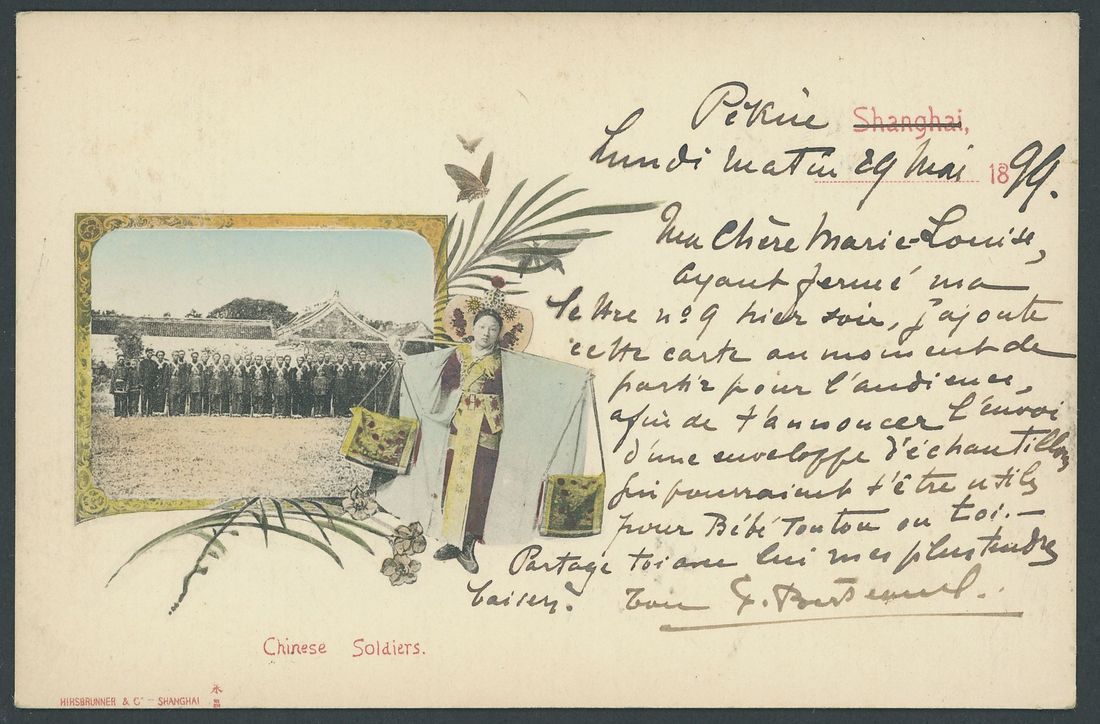 Pékin Shanghai,
Lundi matin 29 Mai 1899.
Ma Chère Marie-Louise,
ayant fermé ma
lettre nº 9 hier soir, j'ajoute
cette carte au moment de
partir pour l'audience,
afin de t'annoncer l'envoi
d'une enveloppe d'échantillons
qui pourraient t'être utiles
pour Bébé Tonton ou toi. —
Partage toi avec lui mes plus tendres
baisers. Ton
Chinese Soldiers.
HIRSBRUNNER & Cº - SHANGHAI